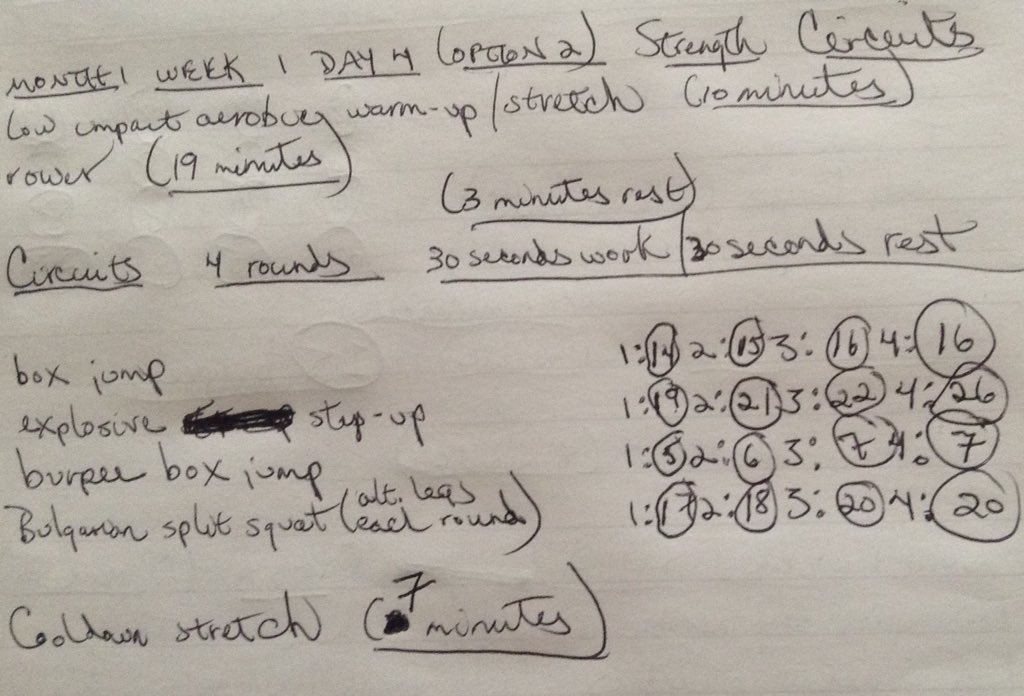 MONTH 1 WEEK 1 DAY 4 (OPTION 2) Strength Circuits
Low impact aerobics warm-up/stretch (10 minutes)
rower (19 minutes)
(3 minutes rest)
Circuits 4 rounds 30 seconds work/30 seconds rest
box jump 1:14 2:15 3:16 4:16
explosive step-up 1:19 2:21 3:22 4:26
burpee box jump 1:5 2:6 3:7 4:7
Bulgarian split squat (alt. legs each round) 1:17 2:18 3:20 4:20
Cooldown stretch (7 minutes)